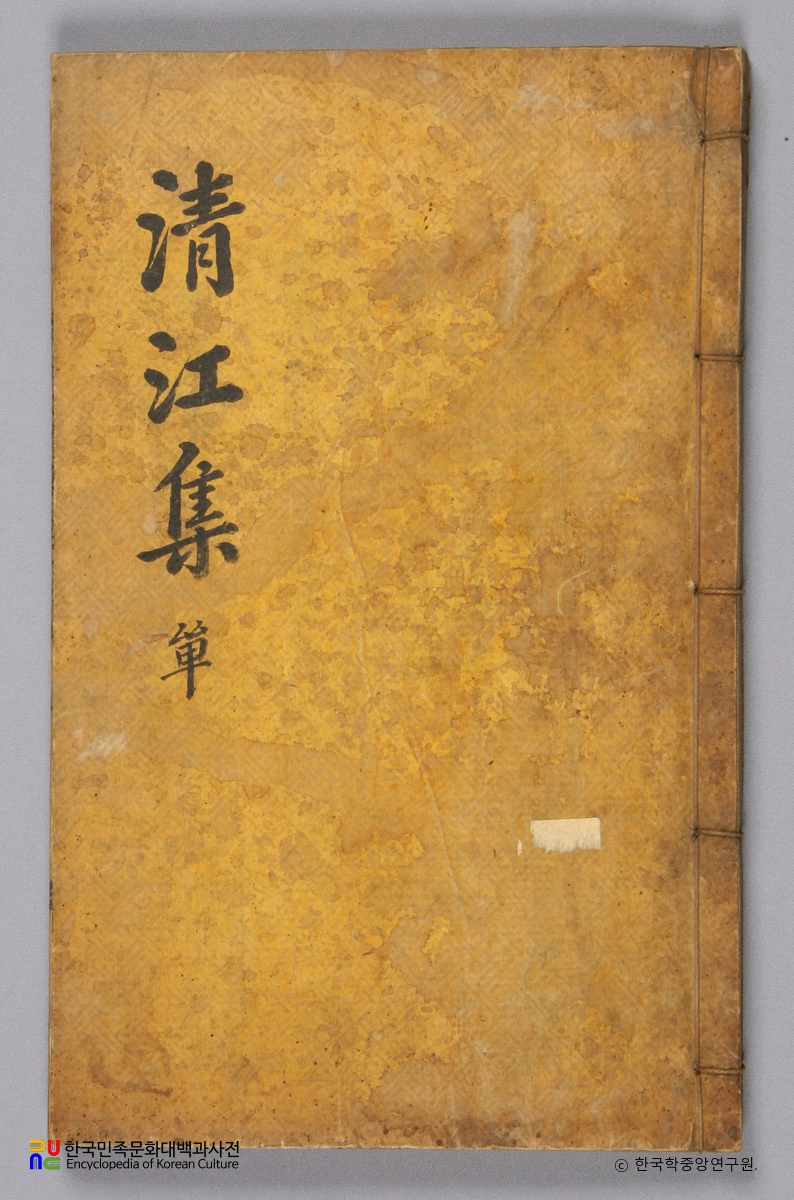 清江集 單
한국민족문화대백과사전
Encyclopedia of Korean Culture
ⓒ 한국학중앙연구원.